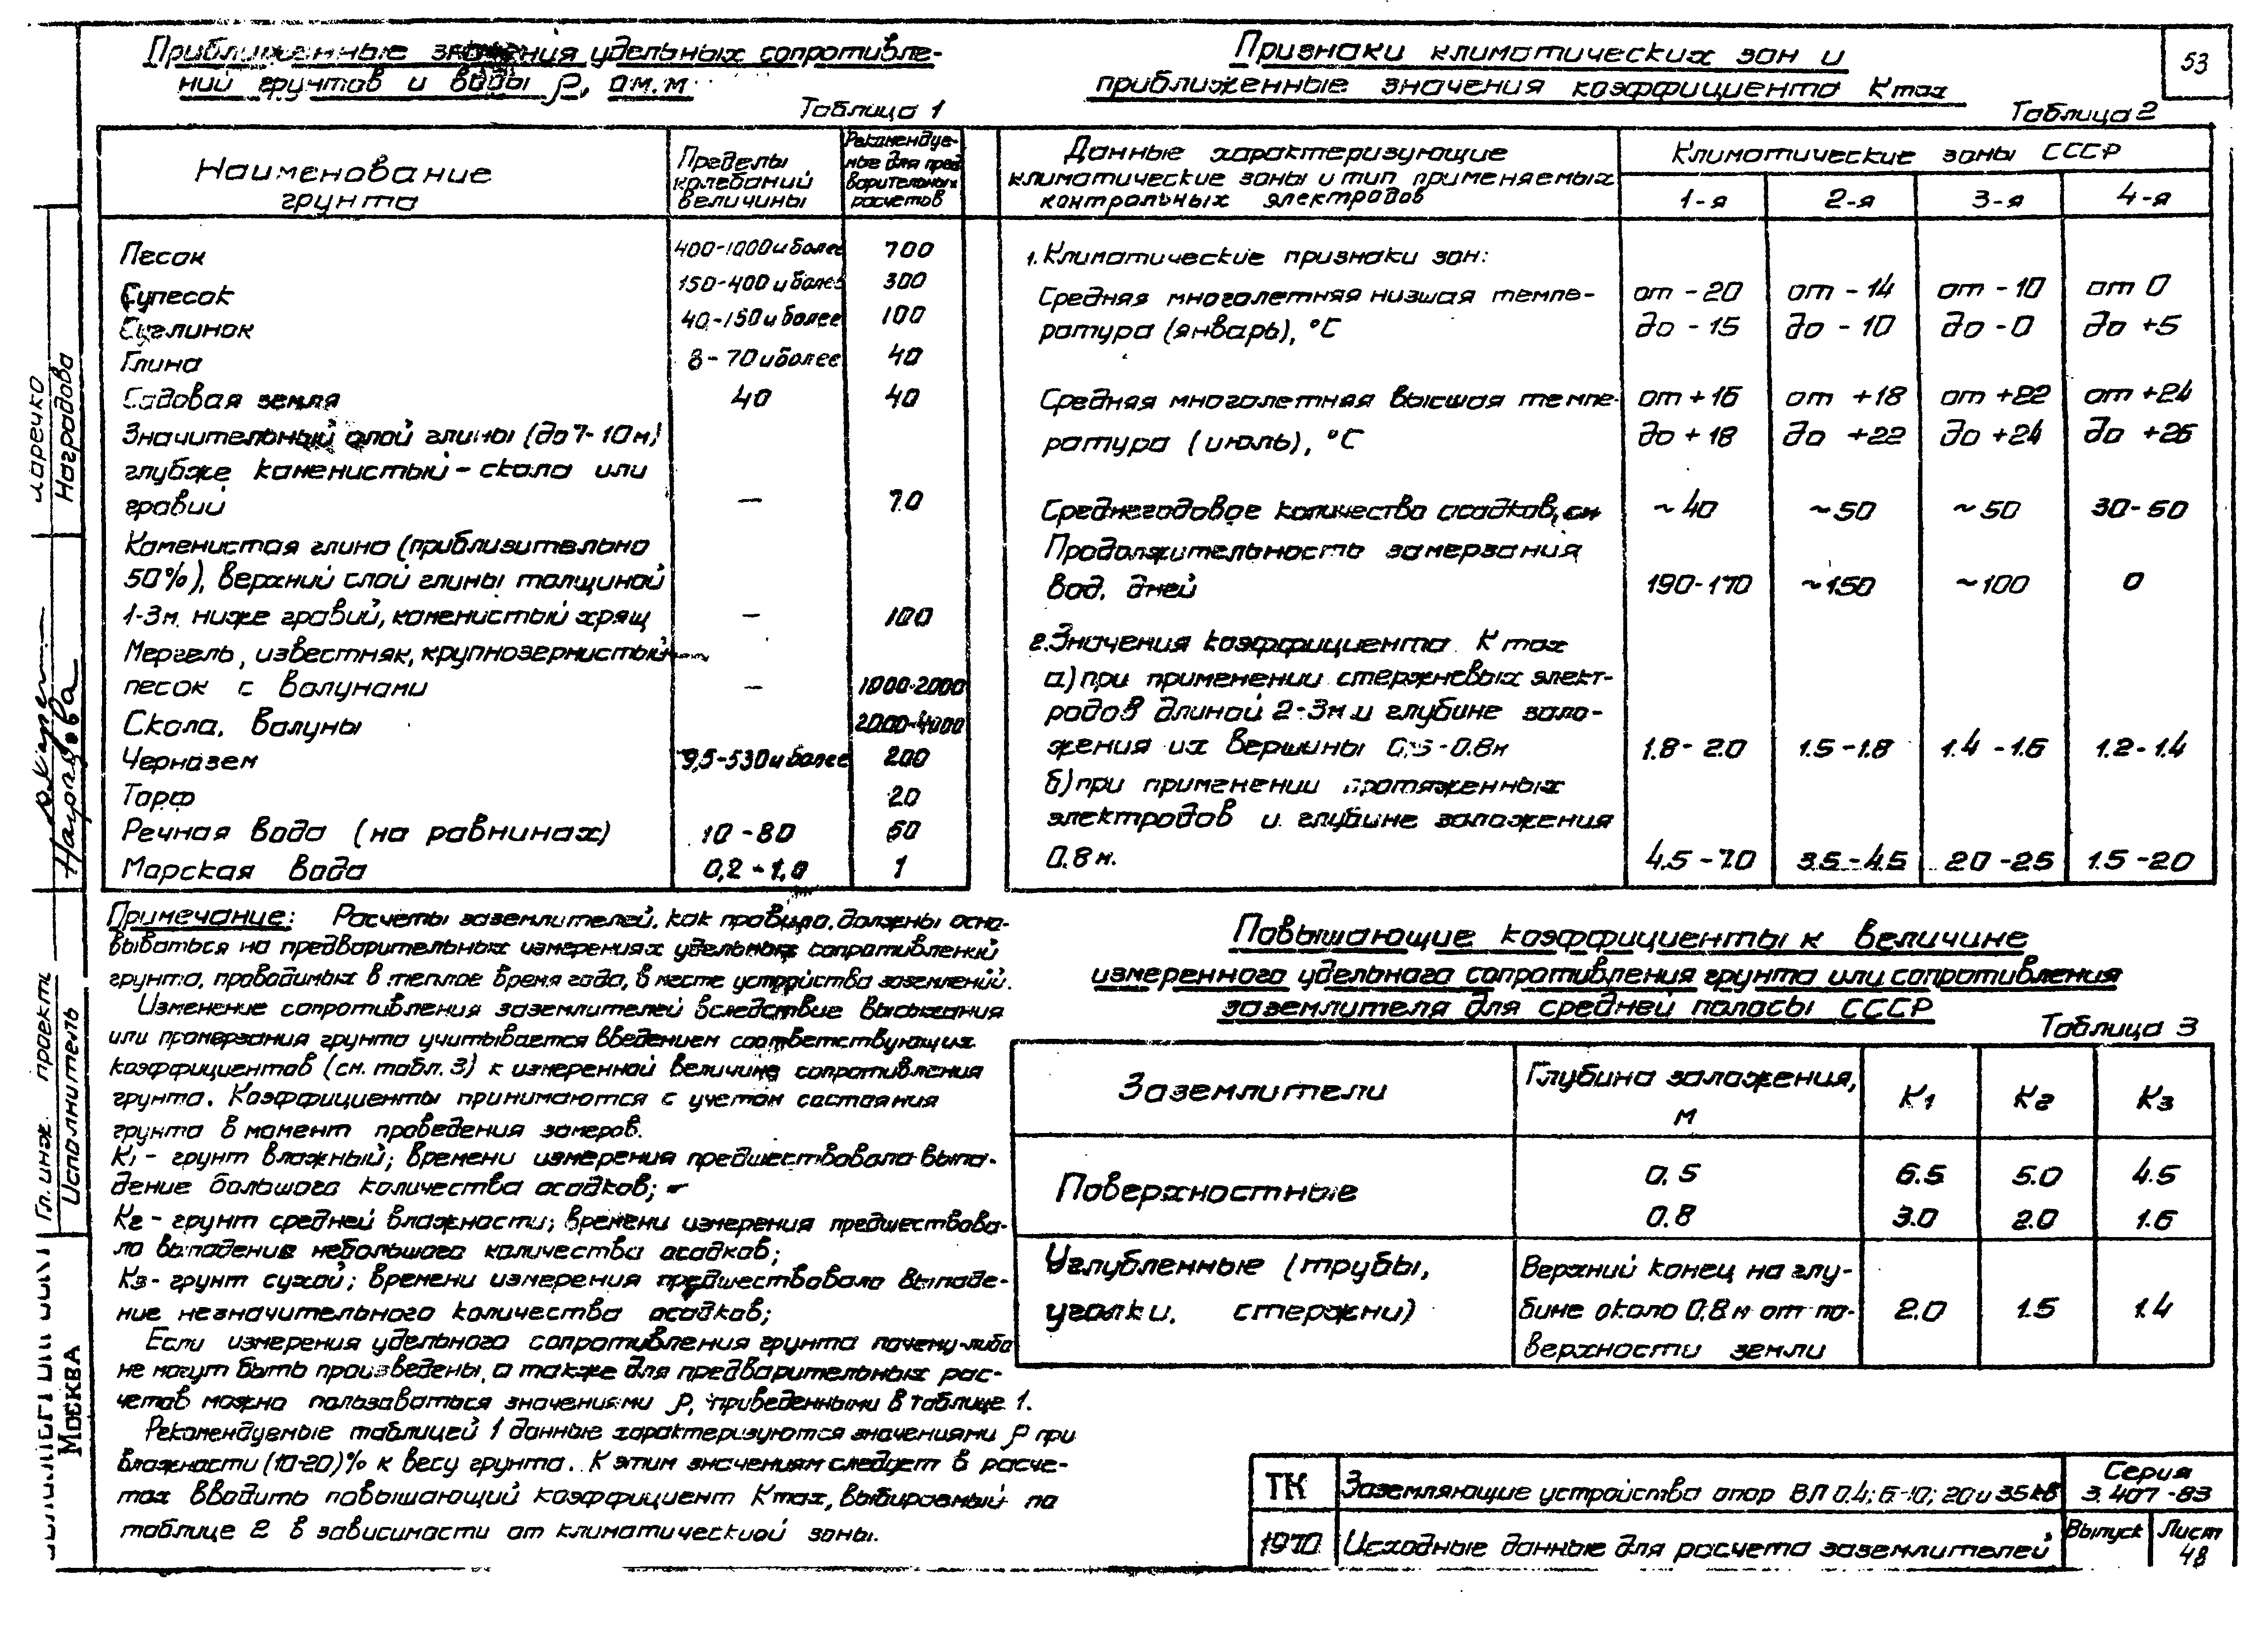 53
Приближенные значения удельных сопротивле-
ний грунтов и воды ρ, ом.м
Таблица 1
Наименование грунта | Пределы колебаний величины | Рекомендуемые для предварительных расчетов
Песок 400-1000 и более 700
Супесок 150-400 и более 300
Суглинок 40-150 и более 100
Глина 8-70 и более 40
Садовая земля 40 40
Значительный слой глины (до 7-10м)
глубже каменистый - скала или
гравий — 70
Каменистая глина (приблизительно
50%), верхний слой глины толщиной
1-3м. ниже гравий, каменистый хрящ — 100
Мергель, известняк, крупнозернистый
песок с валунами — 1000-2000
Скала, валуны 2000-4000
Чернозем 9,5-530 и более 200
Торф 20
Речная вода (на равнинах) 10-80 50
Морская вода 0,2-1,0 1
Примечание: Расчеты заземлителей, как правило, должны осно-
вываться на предварительных измерениях удельных сопротивлений
грунта, проводимых в теплое время года, в месте устройства заземлений.
Изменение сопротивления заземлителей вследствие высыхания
или промерзания грунта учитывается введением соответствующих
коэффициентов (см. табл. 3) к измеренной величине сопротивления
грунта. Коэффициенты принимаются с учетом состояния
грунта в момент проведения замеров.
К1 - грунт влажный; времени измерения предшествовало выпа-
дение большого количества осадков;
К2 - грунт средней влажности; времени измерения предшествова-
ло выпадение небольшого количества осадков;
К3 - грунт сухой; времени измерения предшествовало выпаде-
ние незначительного количества осадков;
Если измерения удельного сопротивления грунта почему-либо
не могут быть произведены, а также для предварительных рас-
четов можно пользоваться значениями ρ, приведенными в таблице 1.
Рекомендуемые таблицей 1 данные характеризуются значениями ρ при
влажности (10-20)% к весу грунта. К этим значениям следует в расче-
тах вводить повышающий коэффициент Kmax, выбираемый по
таблице 2 в зависимости от климатической зоны.
Признаки климатических зон и
приближенные значения коэффициента Kmax
Таблица 2
Данные характеризующие
климатические зоны и тип применяемых
контрольных электродов
Климатические зоны СССР
1-я 2-я 3-я 4-я
1. Климатические признаки зон:
Средняя многолетняя низшая темпе- от -20 от -14 от -10 от 0
ратура (январь), °С до -15 до -10 до -0 до +5
Средняя многолетняя высшая темпе- от +16 от +18 от +22 от +24
ратура (июль), °С до +18 до +22 до +24 до +26
Среднегодовое количество осадков, см ~40 ~50 ~50 30-50
Продолжительность замерзания
вод, дней 190-170 ~150 ~100 0
2. Значения коэффициента K max
а) при применении стержневых элект-
родов длиной 2-3м и глубине зало-
жения их вершины 0,5-0.8м 1.8-2.0 1.5-1.8 1.4-1.6 1.2-1.4
б) при применении протяженных
электродов и глубине заложения
0.8м. 4.5-7.0 3.5-4.5 2.0-2.5 1.5-2.0
Повышающие коэффициенты к величине
измеренного удельного сопротивления грунта или сопротивления
заземлителя для средней полосы СССР
Таблица 3
Заземлители | Глубина заложения, м | К1 | К2 | К3
Поверхностные 0.5 6.5 5.0 4.5
0.8 3.0 2.0 1.6
Углубленные (трубы, Верхний конец на глу-
уголки, стержни) бине около 0.8м от по- 2.0 1.5 1.4
верхности земли
ТК
1970
Заземляющие устройства опор ВЛ 0.4; 6-10; 20 и 35кв
Исходные данные для расчета заземлителей
Серия
3.407-83
Выпуск
Лист
48
Гл. инж. проекта
Исполнитель
Наградова
Москва